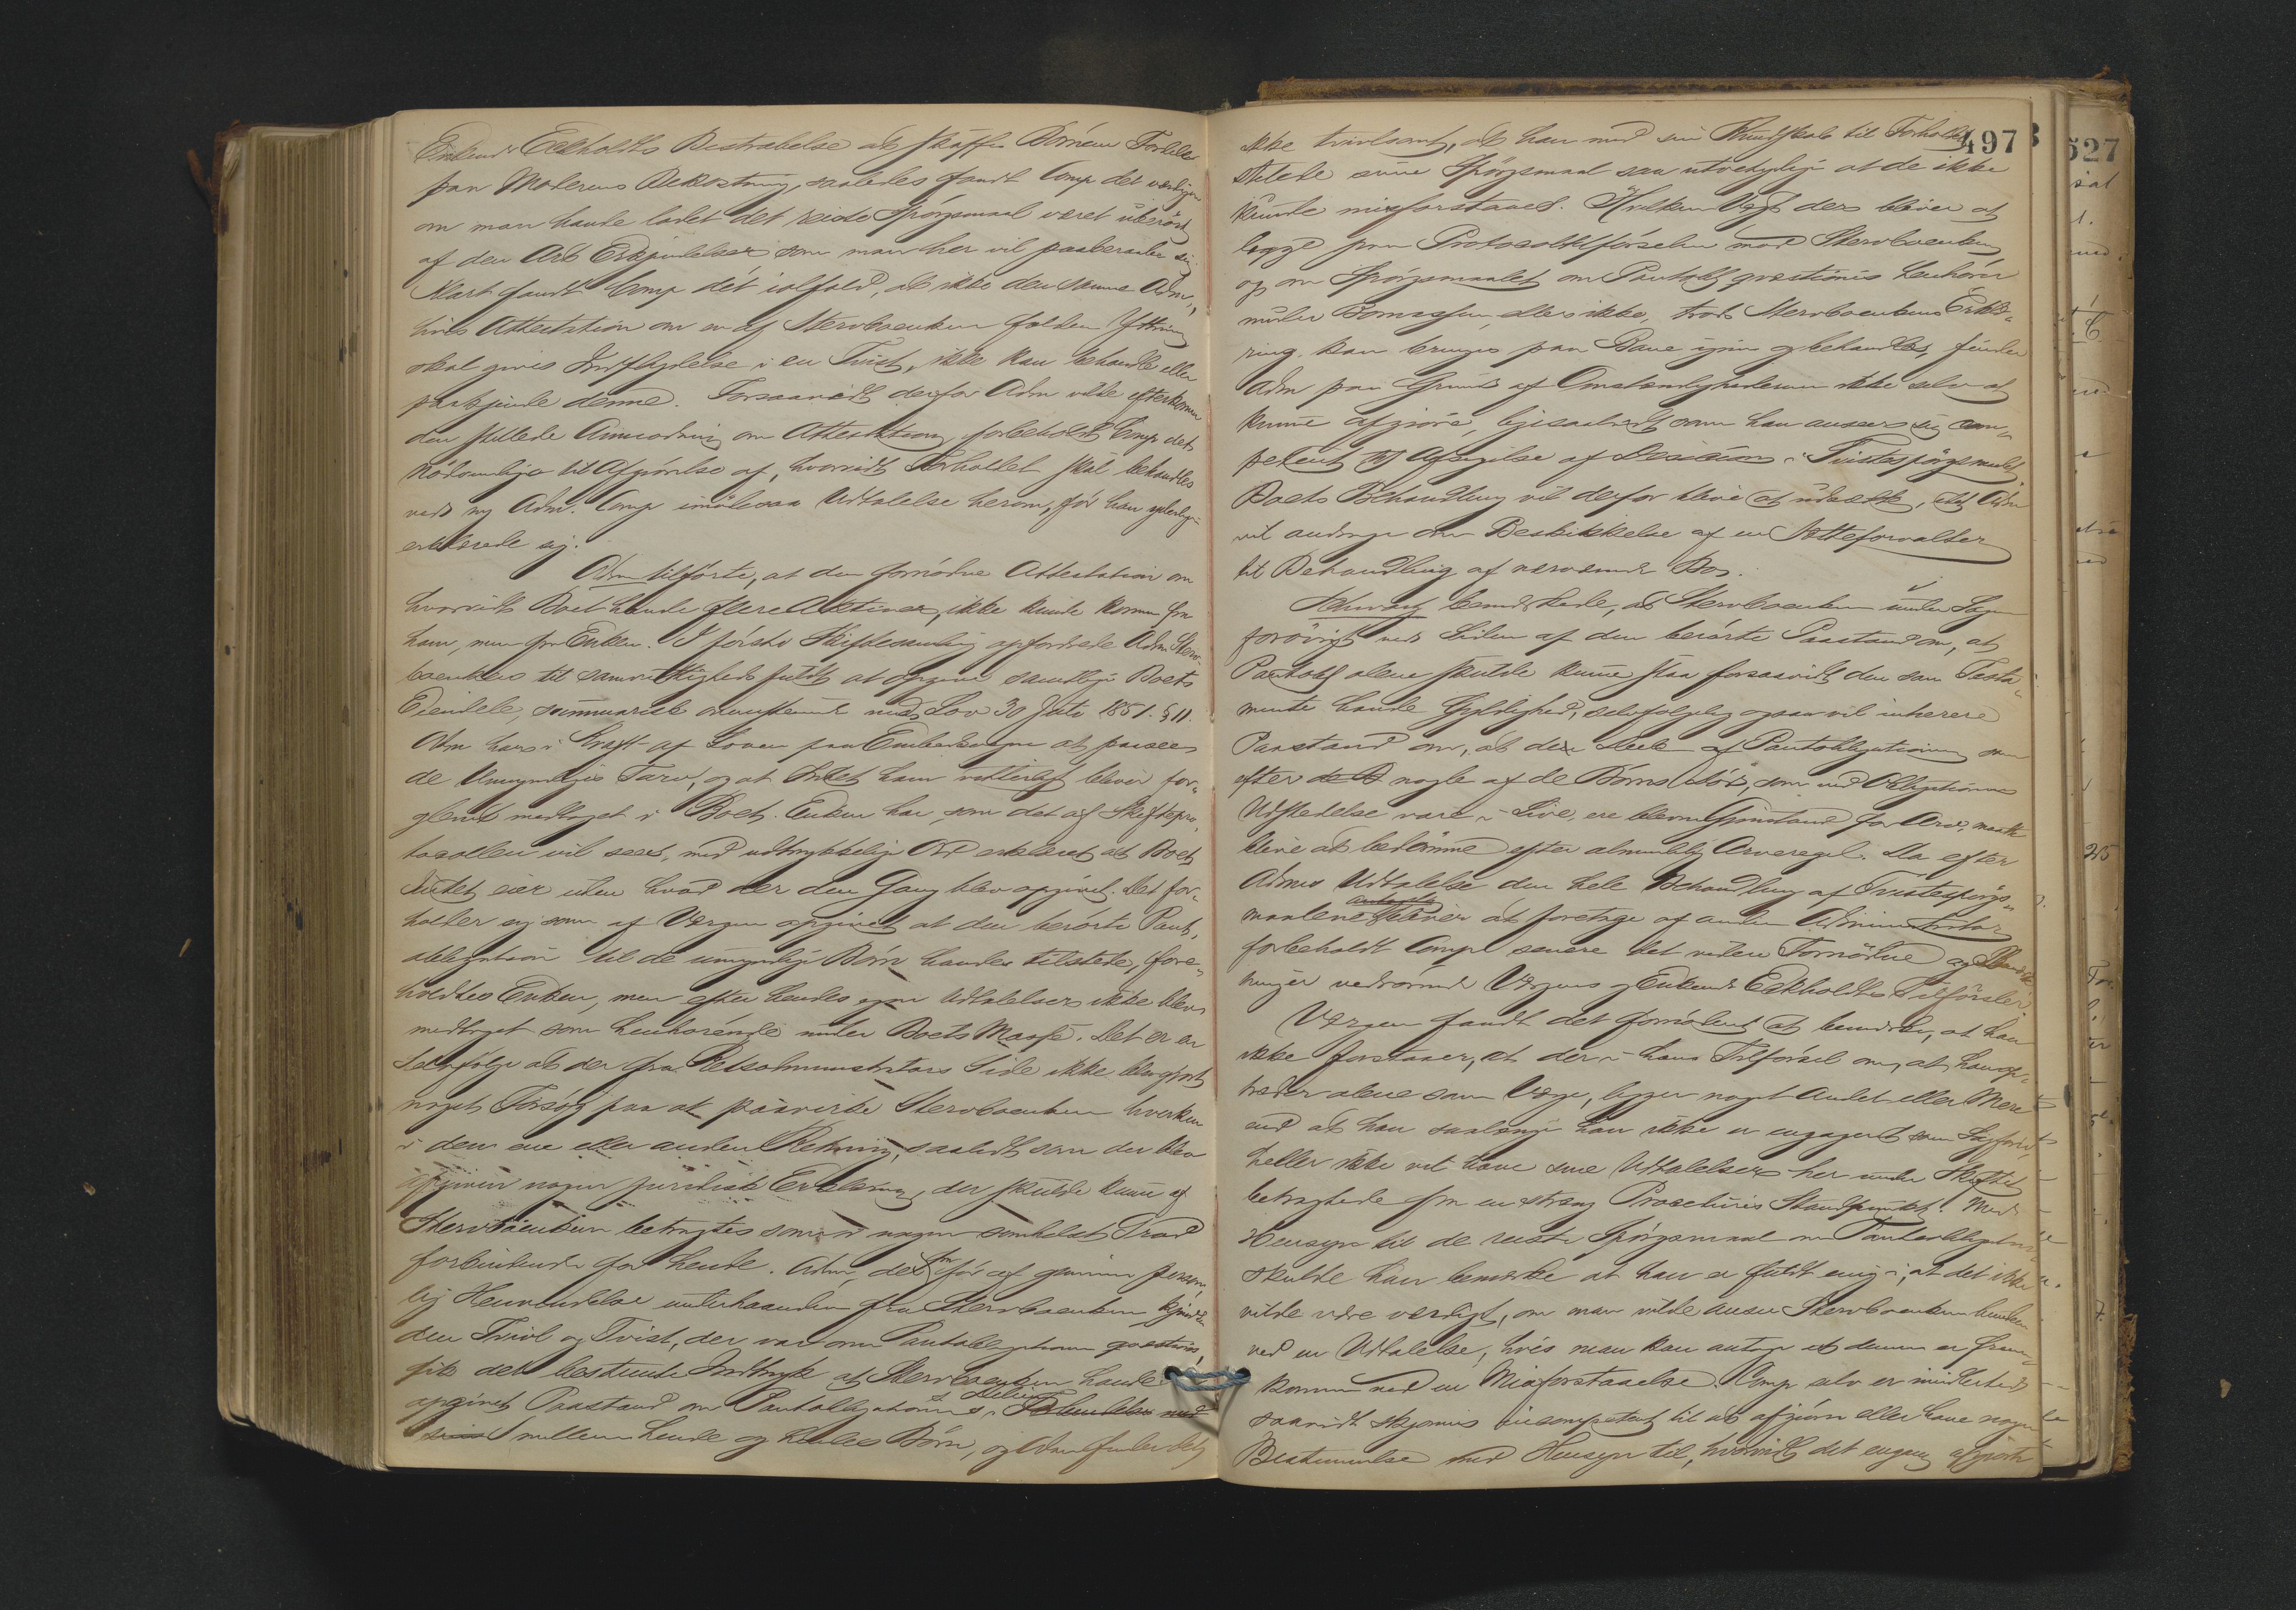 Enkemd. Eckholdts Bestræbelse at skaffe Børnene Fordele
paa Moderens Bekostning, saaledes fandt Comp det
om man havde ladet det reiste Spørgsmaal været uberørt
af den Art Erkjendelser som man her vil paaberaabe sig
Klart fandt Comp det ialfald, at ikke den samme Adm,
hvis Attestation om en af Stervboenken falden Yttring
skal gives Indflydelse i en Tvist, ikke kan behandle eller
paakjende denne. Forsaavidt derfor Adm vilde efterkomme
den stillede Anmodning om Attestation, forbeholdt Comp det
Nødvendige til Afgjørelse af, hvorvidt Forholdet skal behandles
ved ny Adm. Comp imødesaa Udtalelse herom, før han yderligere
erklærede sig.
Adm tilførte, at den fornødne Attestation om
hvorvidt Boet havde flere Aktiver, ikke kunde komme fra
ham, men fra Enken. I første Skiftesamling opfordrede Adm Sterv-
boenken til samvittighedsfuldt at opgive samtlige Boets
Eiendele, summarisk overensstemmende med Lov 30 Juli 1851. § 11.
Adm har i Kraft af Loven paa Embedsvegne at paasee
de Umyndiges Tarv, og at Intet ham vitterligt bliver for-
glemt medtaget i Boet. Enken har, som det af Skiftepro-
tocollen vil sees, med udtrykkelige Ord erklæret at Boet
Intet eier uden hvad der den Gang blev opgivet. Det for-
holder sig som af Værgen opgivet at den berørte Pant-
obligation til de umyndige Børn havdes tilstede, fore-
holdtes Enken, men efter hendes egne Udtalelser ikke blev
medtaget som henhørende under Boets Masse. Det er en
Selvfølge at der fra Retsadministrators Side ikke blev gjort
noget Forsøg paa at paavirke Stervboenken hverken
i den ene eller anden Retning, saalidt som der blev
afgiven nogen juridisk Erklæring, der skulde kunne af
Stervboenken betragtes som i nogen somhelst Grad
forbindende for hende. Adm, der før af gjennem person-
lig Henvendelse underhaanden fra Stervboenken kjendte
den Tvivl og Tvist, der var om Pantobligationen qvæstionis,
fik det bestemte Indtryk at Stervboenken havde
opgivet Paastand om Pantobligationens Deling
mellem hende og hendes Børn, og Adm finder det
497
527
ikke tvivlsomt, at han med sin Kundskab til Forholdet
stillede sine Spørgsmaal saa utvetydige at de ikke
kunde misforstaaes. Hvilken Vægt der bliver at
lægge paa Protocoltilførselen mod Stervboenken
og om Spørgsmaalet om Pantobl qvæstionis henhører
under Bomassen, eller ikke, trods Stervboenkens Erklæ-
ring kan bringes paa Bane igjen og behandles, finder
Adm paa Grund af Omstændighederne ikke selv at
kunne afgjøre, ligesaalidt som han ansees sig com-
petent til Afgivelse af Decision i Tvistespørgsmaalet
Boets Behandling vil derfor blive at udsætte, idet Adm
vil andrage om Beskikkelse af en Sætteforvalter
til Behandling af nærværende Bo.
bemærkede, at Stervboenken under Sagen
forøvrigt ved Siden af den berørte Paastand om, at
Pantobl alene skulde kunne staa forsaavidt den som Testa-
mente havde Gyldighed, selvfølgelig ogsaa vil inhærere
Paastand om, at den Deel af Pantobligationen som
efter nogle af de Børns Død, som ved Obligationens
Udstedelse vare i Live, ere bleven Gjenstand for Arv, maatte
blive at bedømme efter almindelig Arveregel. Da efter
Adms Udtalelse den hele Behandling af Tvistespørgs-
maalene bliver at foretage af anden Administrator
forbeholdt Comp senere det videre Fornødne og Bemærk-
ninger vedrørende Værgens og Enkemd Eckholdts Tilførsler
Værgen fandt det fornødent at bemærke, at han
ikke forstaaer, at der i hans Tilførsel om, at han op-
træder alene som Værge, ligger noget Andet eller Mere
end at han saalænge han ikke er engageret som Sagfører,
heller ikke vil have sine Udtalelser her under Skiftet
betragtede fra en streng Proceduris Standpunkt. Med
Hensyn til de reiste Spørgsmaal om Pantobligationen
skulde han bemærke at han er fuldt enig i, at det ikke
vilde være værdigt, om man vilde ansee Stervboenken bunden
ved en Udtalelse, hvis man kan antage at denne er frem-
kommen ved en Misforstaaelse. Comp selv er imidlertid
saavidt skjønnes incompetent til at afgjøre eller have nogen
Bestemmelse med Hensyn til, hvorvidt det engang afgjorte